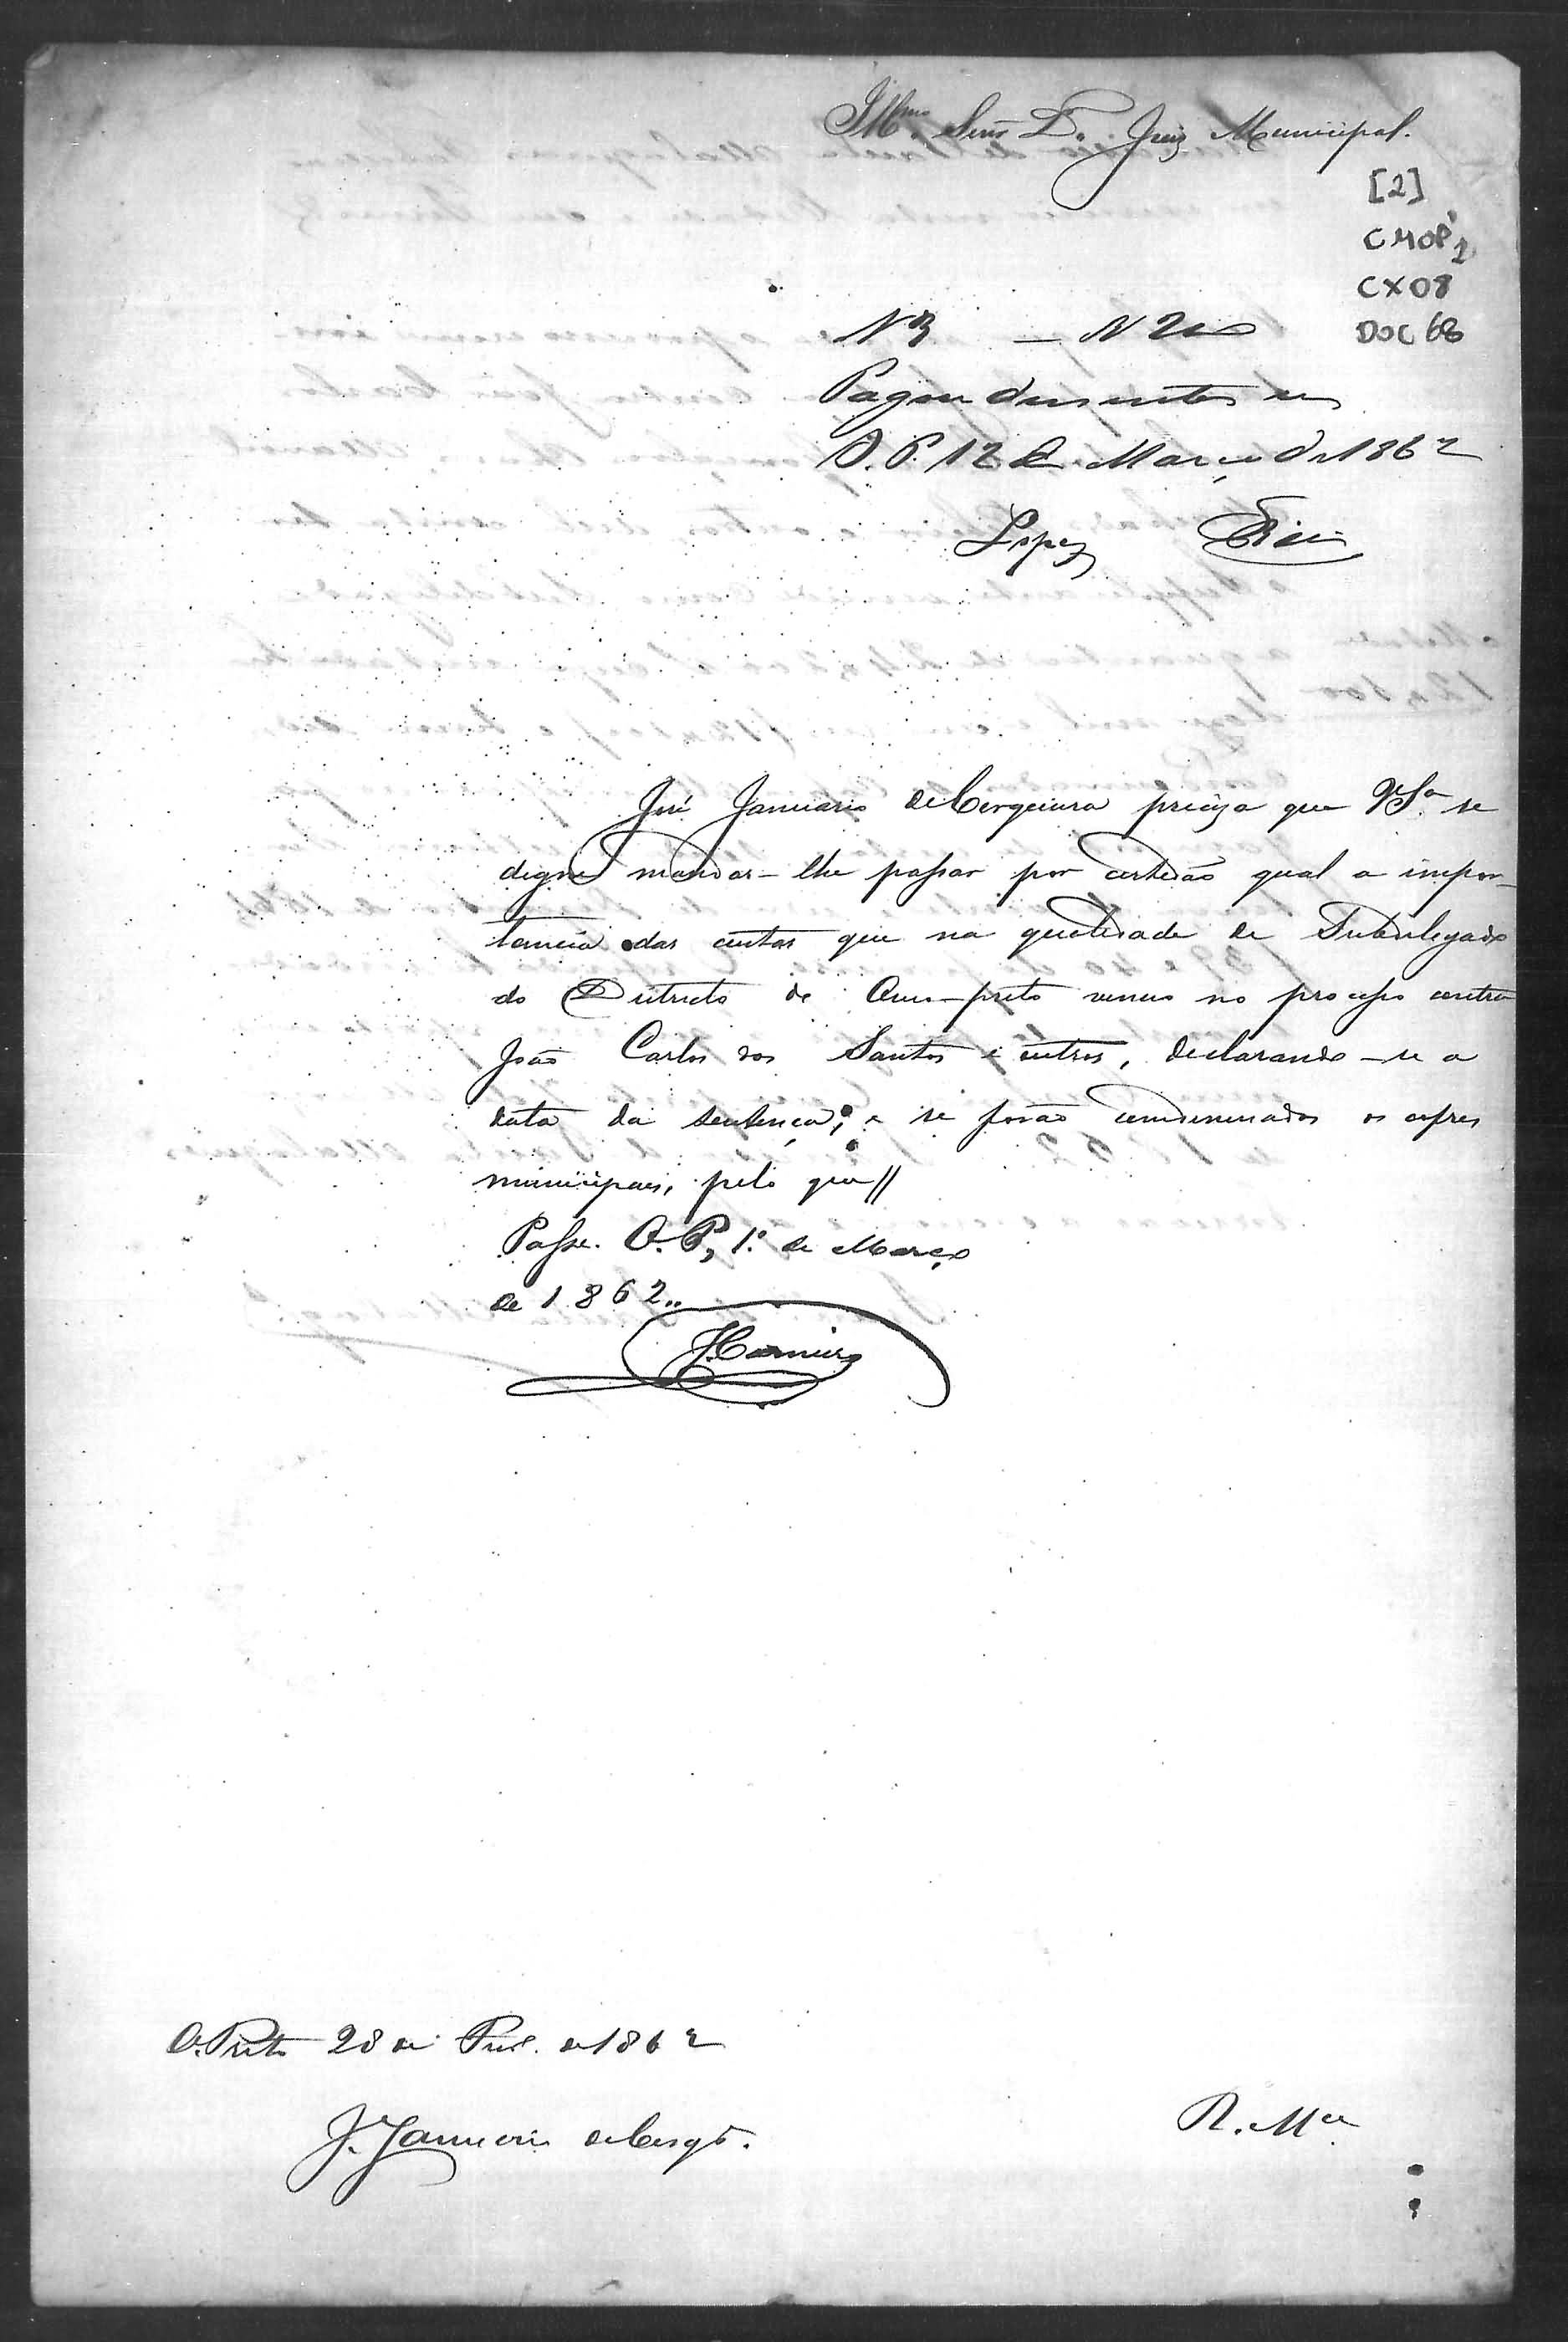 Illmo. Senr. Dr. Juiz Municipal.
[2]
CMOP
CX08
DOC 68
N 3 — N 200
Pagou duzentos reis
O. P. 12 de Março de 1862
Lopes
José Januario de Cerqueira preciza que VSa. se
digne mandar-lhe passar por certidão qual a impor-
tancia das custas que na qualidade de Subdelegado
do Districto de Ouro-preto venceu no processo contra
João Carlos dos Santos e outros, declarando-se a
data da sentença; e se forão condemnados os cofres
municipaes, pelo que//
Passe. O. P., 1.º de Março
de 1862..
J. Carneiro
O. Preto 28 de Fevo. de 1862
J. Januario de Cerqa.
R. Mce